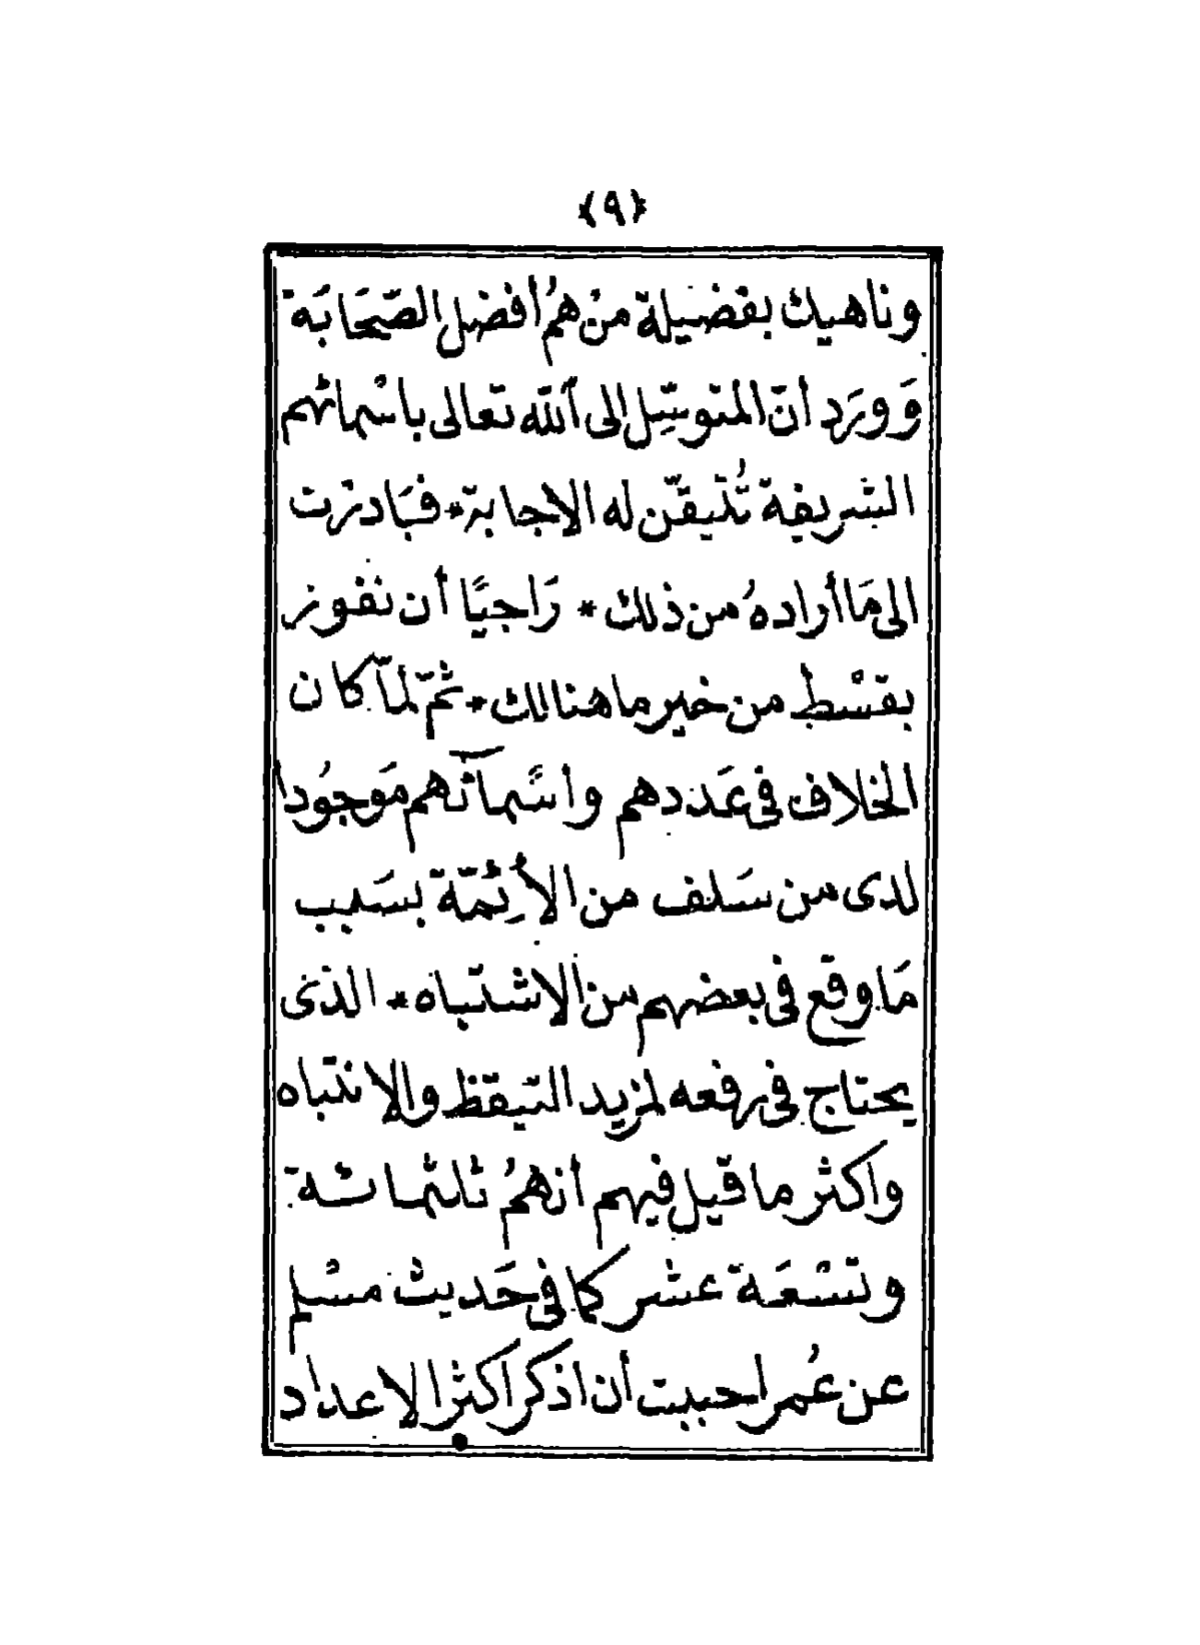 ﴿٩﴾
وناهيك بفضيلة من هُم أفضل الصّحَابَة
وَوَرَد أنّ المتوسّل إلى ٱللّه تعالى باسْمائهم
الشريفة تُتيقّن له الاجابة * فبَادرت
الى مَا أرادهُ من ذلك * رَاجيًا أن نفوز
بقسْط من خير ما هنالك * ثمّ لمّا كان
الخلاف فى عَددهم وأسْمآئهم مَوجُودا
لدى من سَلف من الأئِمّة بسَبب
مَا وقع فى بعضهم من الاشتباه * الذى
يحتاج فى رفعه لمزيد التيقظ والانتباه
واكثر ما قيل فيهم أنهمُ ثلثمائة
وتسْعَة عشر كما فى حَديث مسْلم
عن عُمر احببت أن اذكر اكثر الاعداد